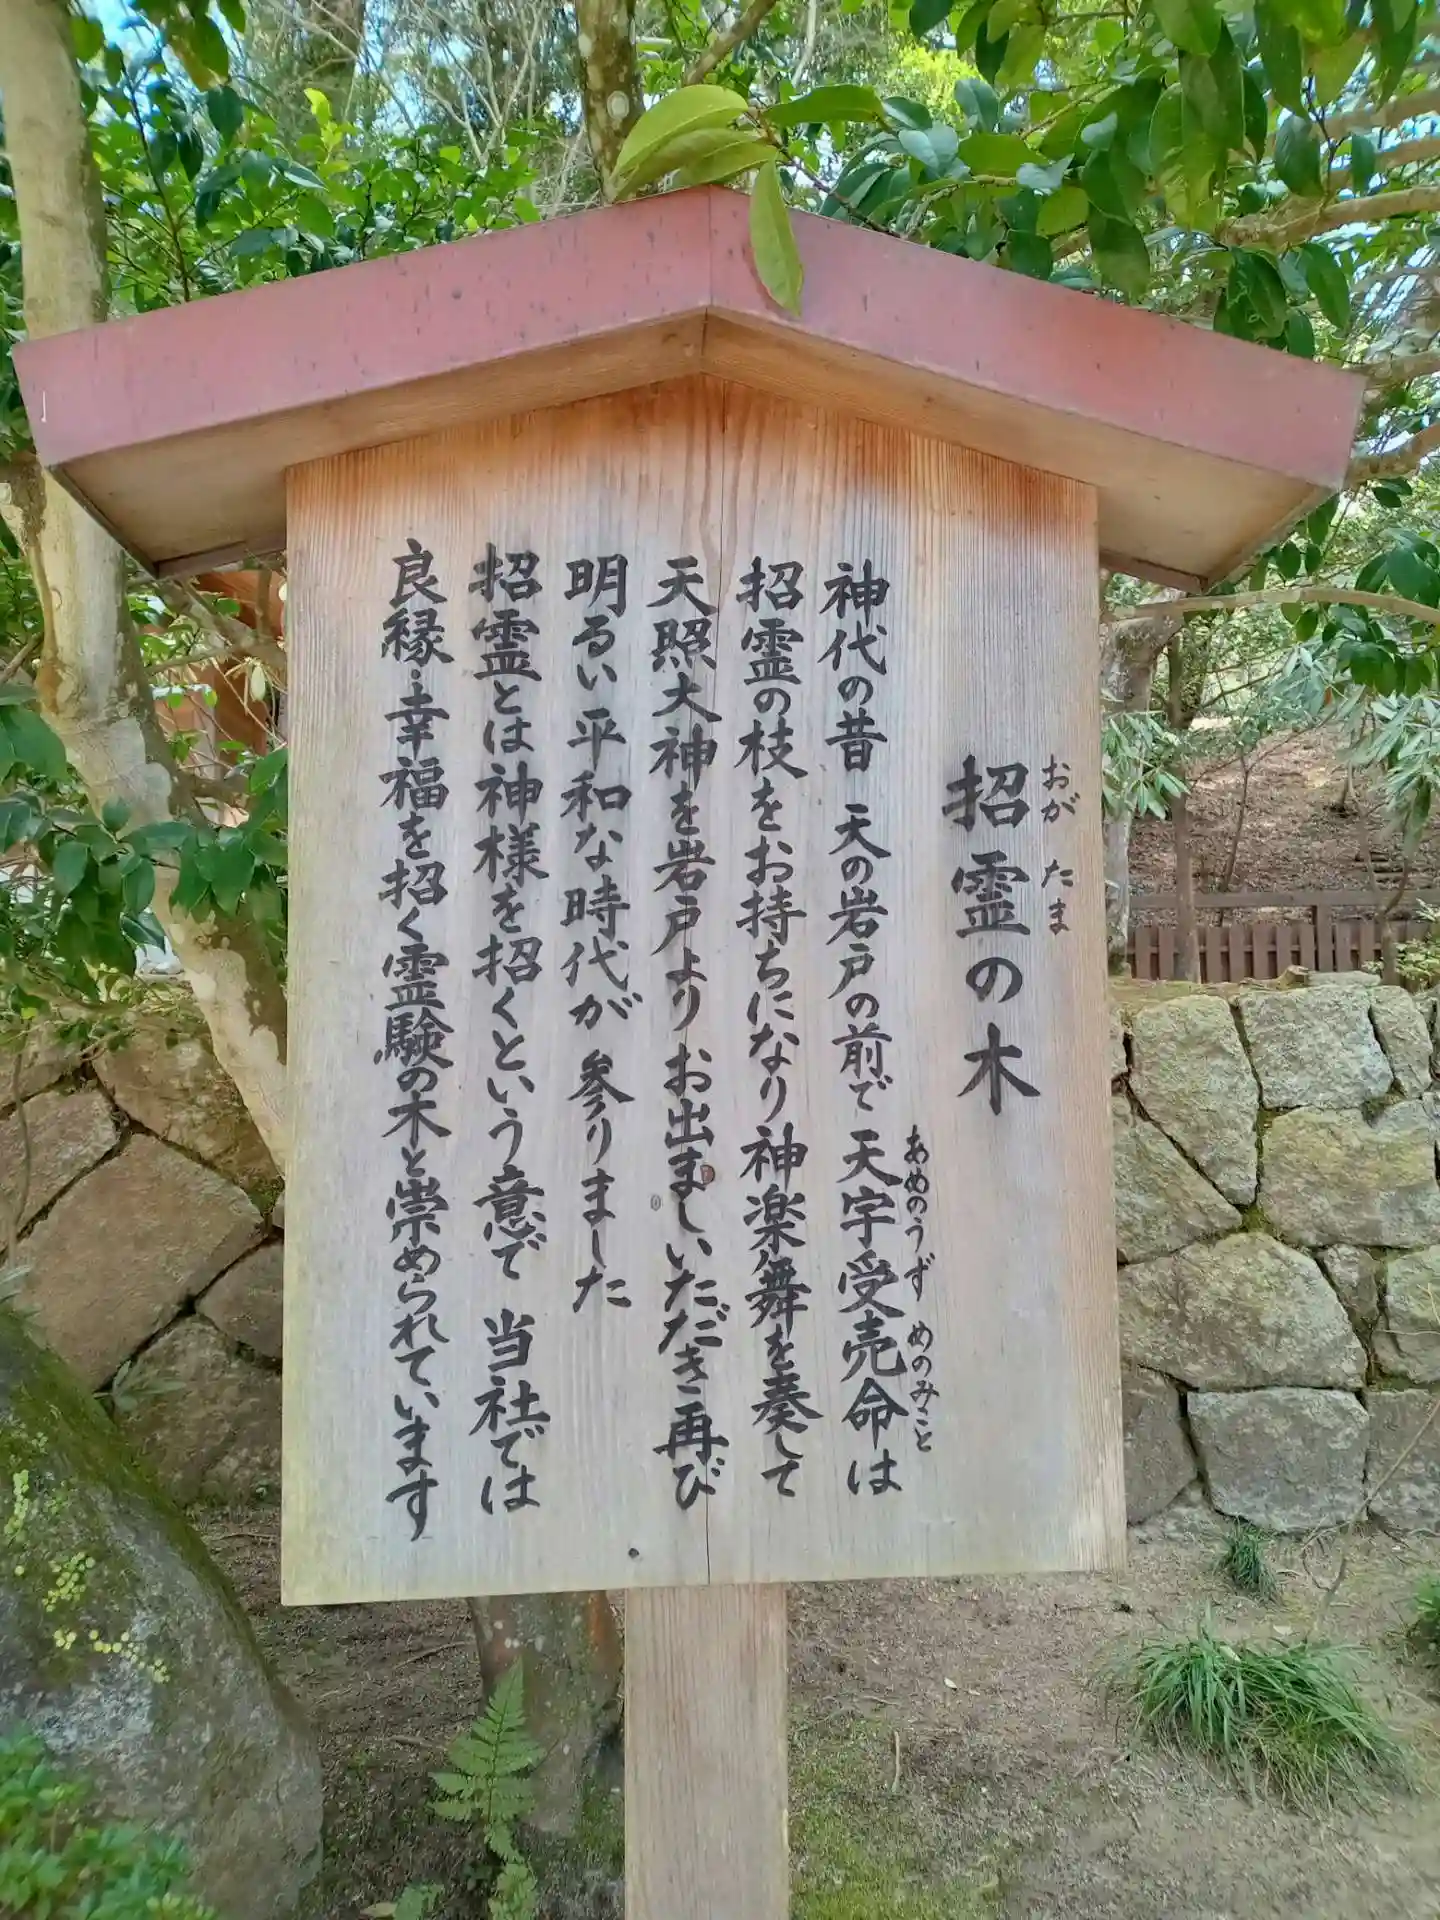 招霊の木
おがたま
神代の昔 天の岩戸の前で 天宇受売命は
あめのうずめのみこと
招霊の枝をお持ちになり神楽舞を奏して
天照大神を岩戸より お出ましいただき再び
明るい平和な時代が 参りました
招霊とは神様を招くという意で 当社では
良縁・幸福を招く霊験の木と崇められています